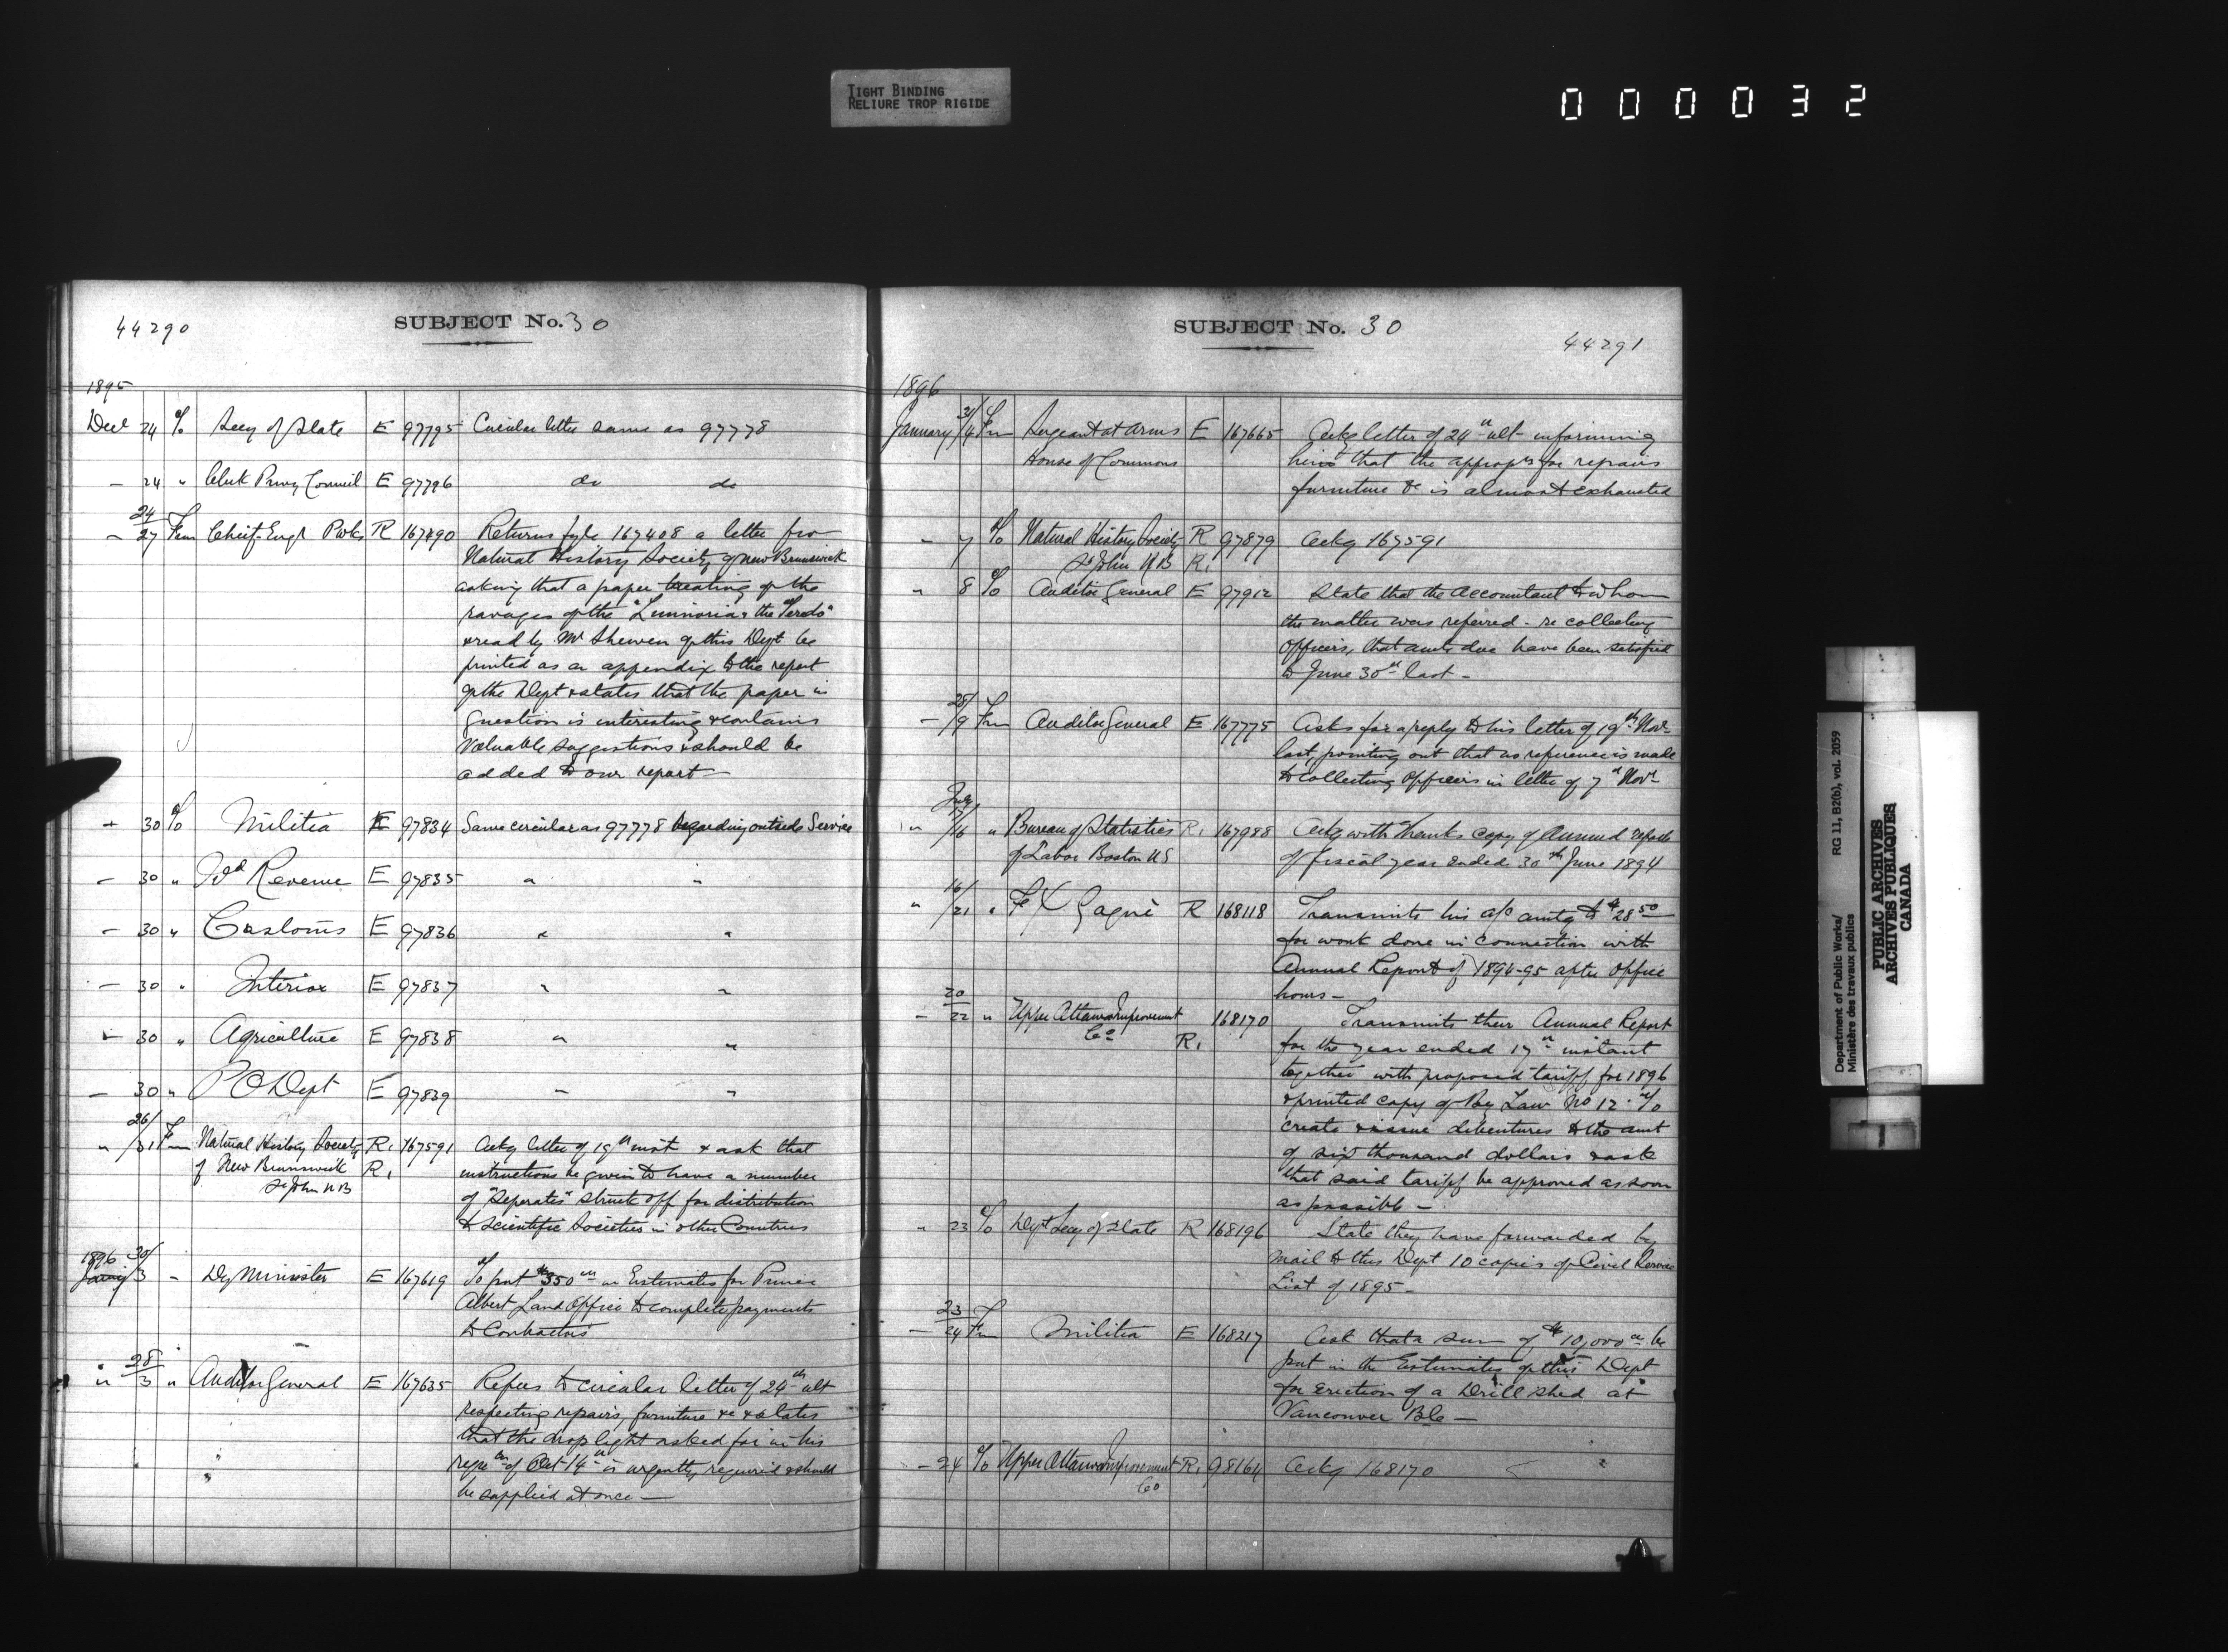 TIGHT BINDING
RELIURE TROP RIGIDE
000032
44290
SUBJECT No. 30
1895
Dec 24 To Secy of State E 97795 Circular letter same as 97778
— 24 " Clerk Privy Council E 97796 do do
— 24/27 Fm Chief Engr P Wks R 167490 Returns fyle 167408 a letter fro
Natural History Society of New Brunswick
asking that a paper treating of the
ravages of the "Limnoria & the Teredo"
& read by Mr Shewen of this Dept be
printed as an appendix to the report
of the Dept & states that the paper in
question is interesting & contains
valuable suggestions & should be
added to our report —
" 30 To Militia E 97834 Same circular as 97778 regarding outside Service
— 30 " Ild Revenue E 97835 " "
— 30 " Customs E 97836 " "
— 30 " Interior E 97837 " "
— 30 " Agriculture E 97838 " "
— 30 " P O Dept E 97839 " "
" 26/31 Fm Natural History Society R. 167591 Ackg letter of 19th inst & ask that
of New Brunswick R. instructions be given to have a number
St John NB of "Seperates" struck off for distribution
to scientific Societies in other Countries
1896
Jany 30/3 " Dy Minister E 167619 To put $350 00 in Estimates for Prince
Albert Land Office to complete payments
to Contractors
" 28/3 " Auditor General E 167635 Refers to circular letter of 24th ult
respecting repairs, furniture &c & states
that the drop light asked for in his
reqn of Oct 14th is urgently required & should
be supplied at once —
SUBJECT No. 30
44291
1896
January 3/4 Fm Sergeant at Arms E 167665 Ackg letter of 24th ult informing
House of Commons him that the appropn for repairs
furniture &c is almost exhausted
— 7 To Natural History Society R 97879 Ackg 167591
St John N B R.
" 8 To Auditor General E 97912 State that the Accountant to whom
the matter was referred - re collecting
Officers, that amts due have been satisfied
to June 30th last —
— 28/9 Fm Auditor General E 167775 Asks for a reply to his letter of 19th Nov
last, pointing out that no reference is made
to collecting Officers in letter of 7th Nov
" 16 " Bureau of Statistics R. 167988 Ackg with thanks copy of Annual report
of Labor Boston US of fiscal year ended 30th June 1894
" 16/21 " F X Gagné R 168118 Transmits his a/c amtg to $28 50
for work done in connection with
Annual Report of 1894-95 after Office
hours —
— 20/22 " Upper Ottawa Improvement 168170 Transmits their Annual Report
Co R. for the year ended 17th instant
together with proposed tariff for 1896
& printed copy of By Law No 12 - To
create & issue debentures to the amt
of six thousand dollars & ask
that said tariff be approved as soon
as possible —
" 23 To Dept Secy of State R 168196 State they have forwarded by
mail to this Dept 10 copies of Civil Service
List of 1895 —
— 23/24 Fm Militia E 168217 Ask that a sum of $10,000 00 be
put in the Estimates of this Dept
for erection of a Drill Shed at
Vancouver B C —
— 24 To Upper Ottawa Improvement R. 98164 Ackg 168170
Co
Department of Public Works/
Ministère des travaux publics
RG 11, B2(b), vol. 2059
PUBLIC ARCHIVES
ARCHIVES PUBLIQUES
CANADA